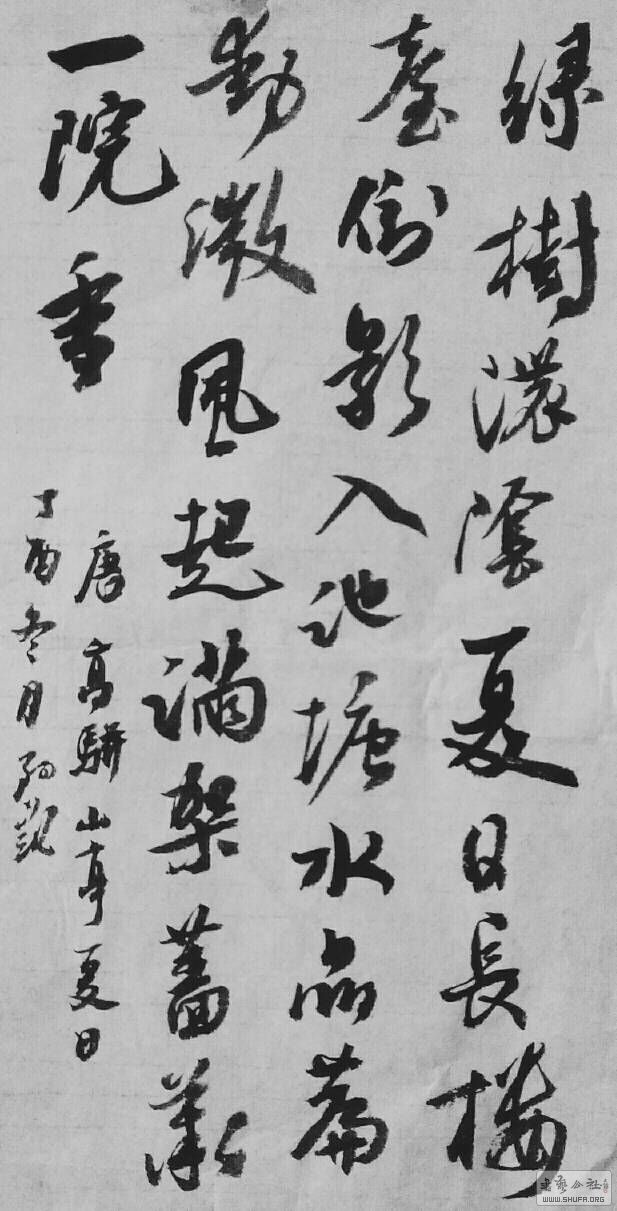 緑樹濃陰夏日長樓
臺倒影入池塘水品簾
動微風起滿架薔薇
一院香
唐高駢山亭夏日
丁酉冬月
書藝公社
WWW.SHUFA.ORG